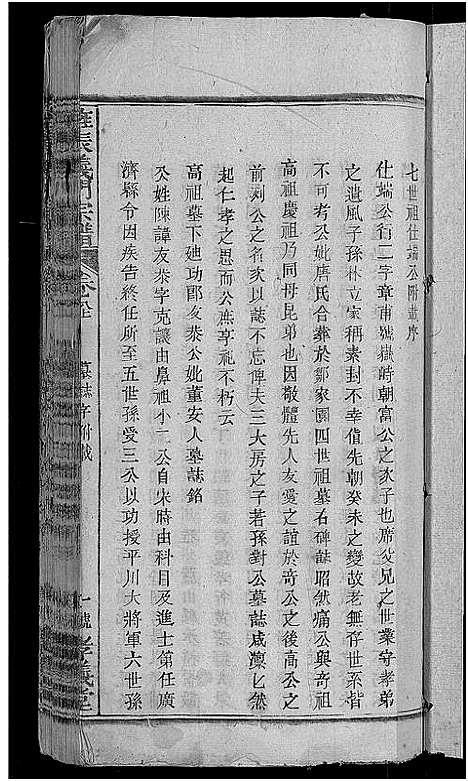 七世祖仕端公附葬序
仕端公行二字章甫號嶽峙朝富公之家子也席父兄之世業守孝弟
之遺風子孫林立家稱素封不幸值先朝癸未之變故老無存世系皆
不可考公妣唐氏合葬於鄒家園四世祖墓右碑誌昭然痛公與奇祖
高祖慶祖乃同母昆弟也因敬體先人友愛之誼於奇公之後高公之
前列公之名家以誌不忘俾夫三大房之子若孫對公墓誌咸凜匕然
起仁孝之思而公庶享祀不朽云
高祖墓下廸功郎友泰公妣董安人墓誌銘
公姓陳諱友泰字克讓由鼻祖小二公自宋時由科目及進士第任廣
濟縣令因疾告終任所至五世孫受三公以功授平川大將軍六世孫
張義門宗譜
墓誌字附載
十號 孝義堂